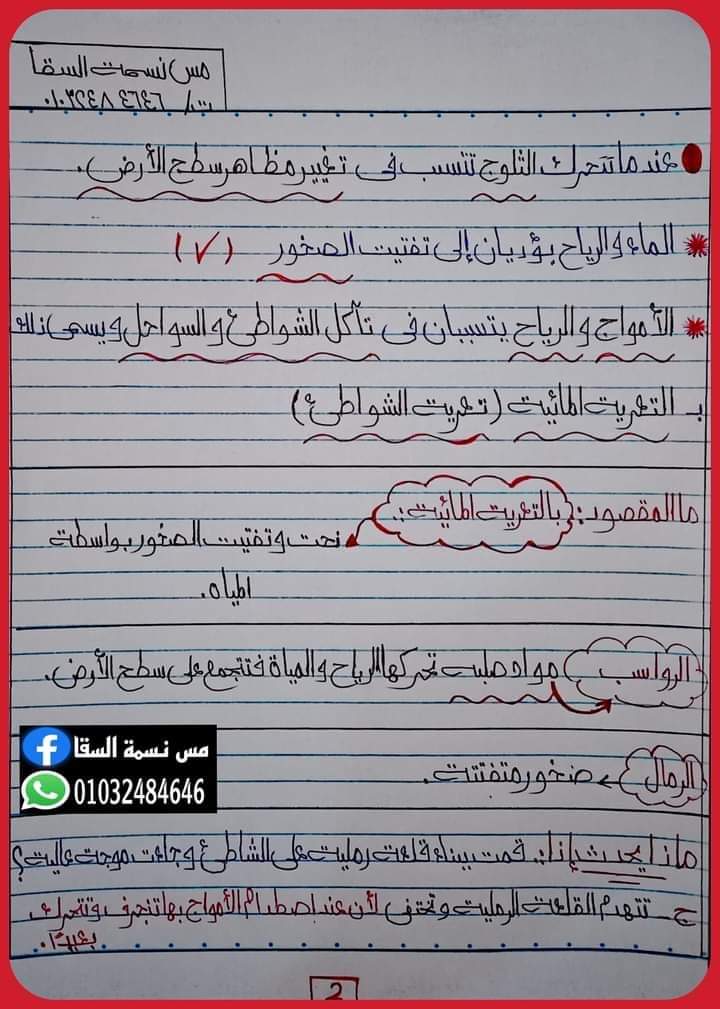 مس نسمة السقا
ت/ ٠١٠٣٢٤٨٤٦٤٦
عندما تتحرك الثلوج تتسبب فى تغيير مظاهر سطح الأرض.
* الماء والرياح يؤديان إلى تفتيت الصخور (√)
* الأمواج والرياح يتسببان فى تآكل الشواطئ والسواحل ويسمى ذلك
بـ التعرية المائية (تعرية الشواطئ)
ما المقصود: بالتعرية المائية:.
نحت وتفتيت الصخور بواسطة
المياه.
الرواسب مواد صلبة تحركها الرياح والمياة فتتجمع على سطح الأرض.
مس نسمة السقا
01032484646
الرمال ← صخور متفتتة.
ماذا يحدث إذا:. قمت ببناء قلعة رملية على الشاطئ وجاءت موجة عالية؟
ج_ تتهدم القلعة الرملية وتختفى لأن عند اصطدام الأمواج بها تنجرف وتتحرك
بعيدًا.
2